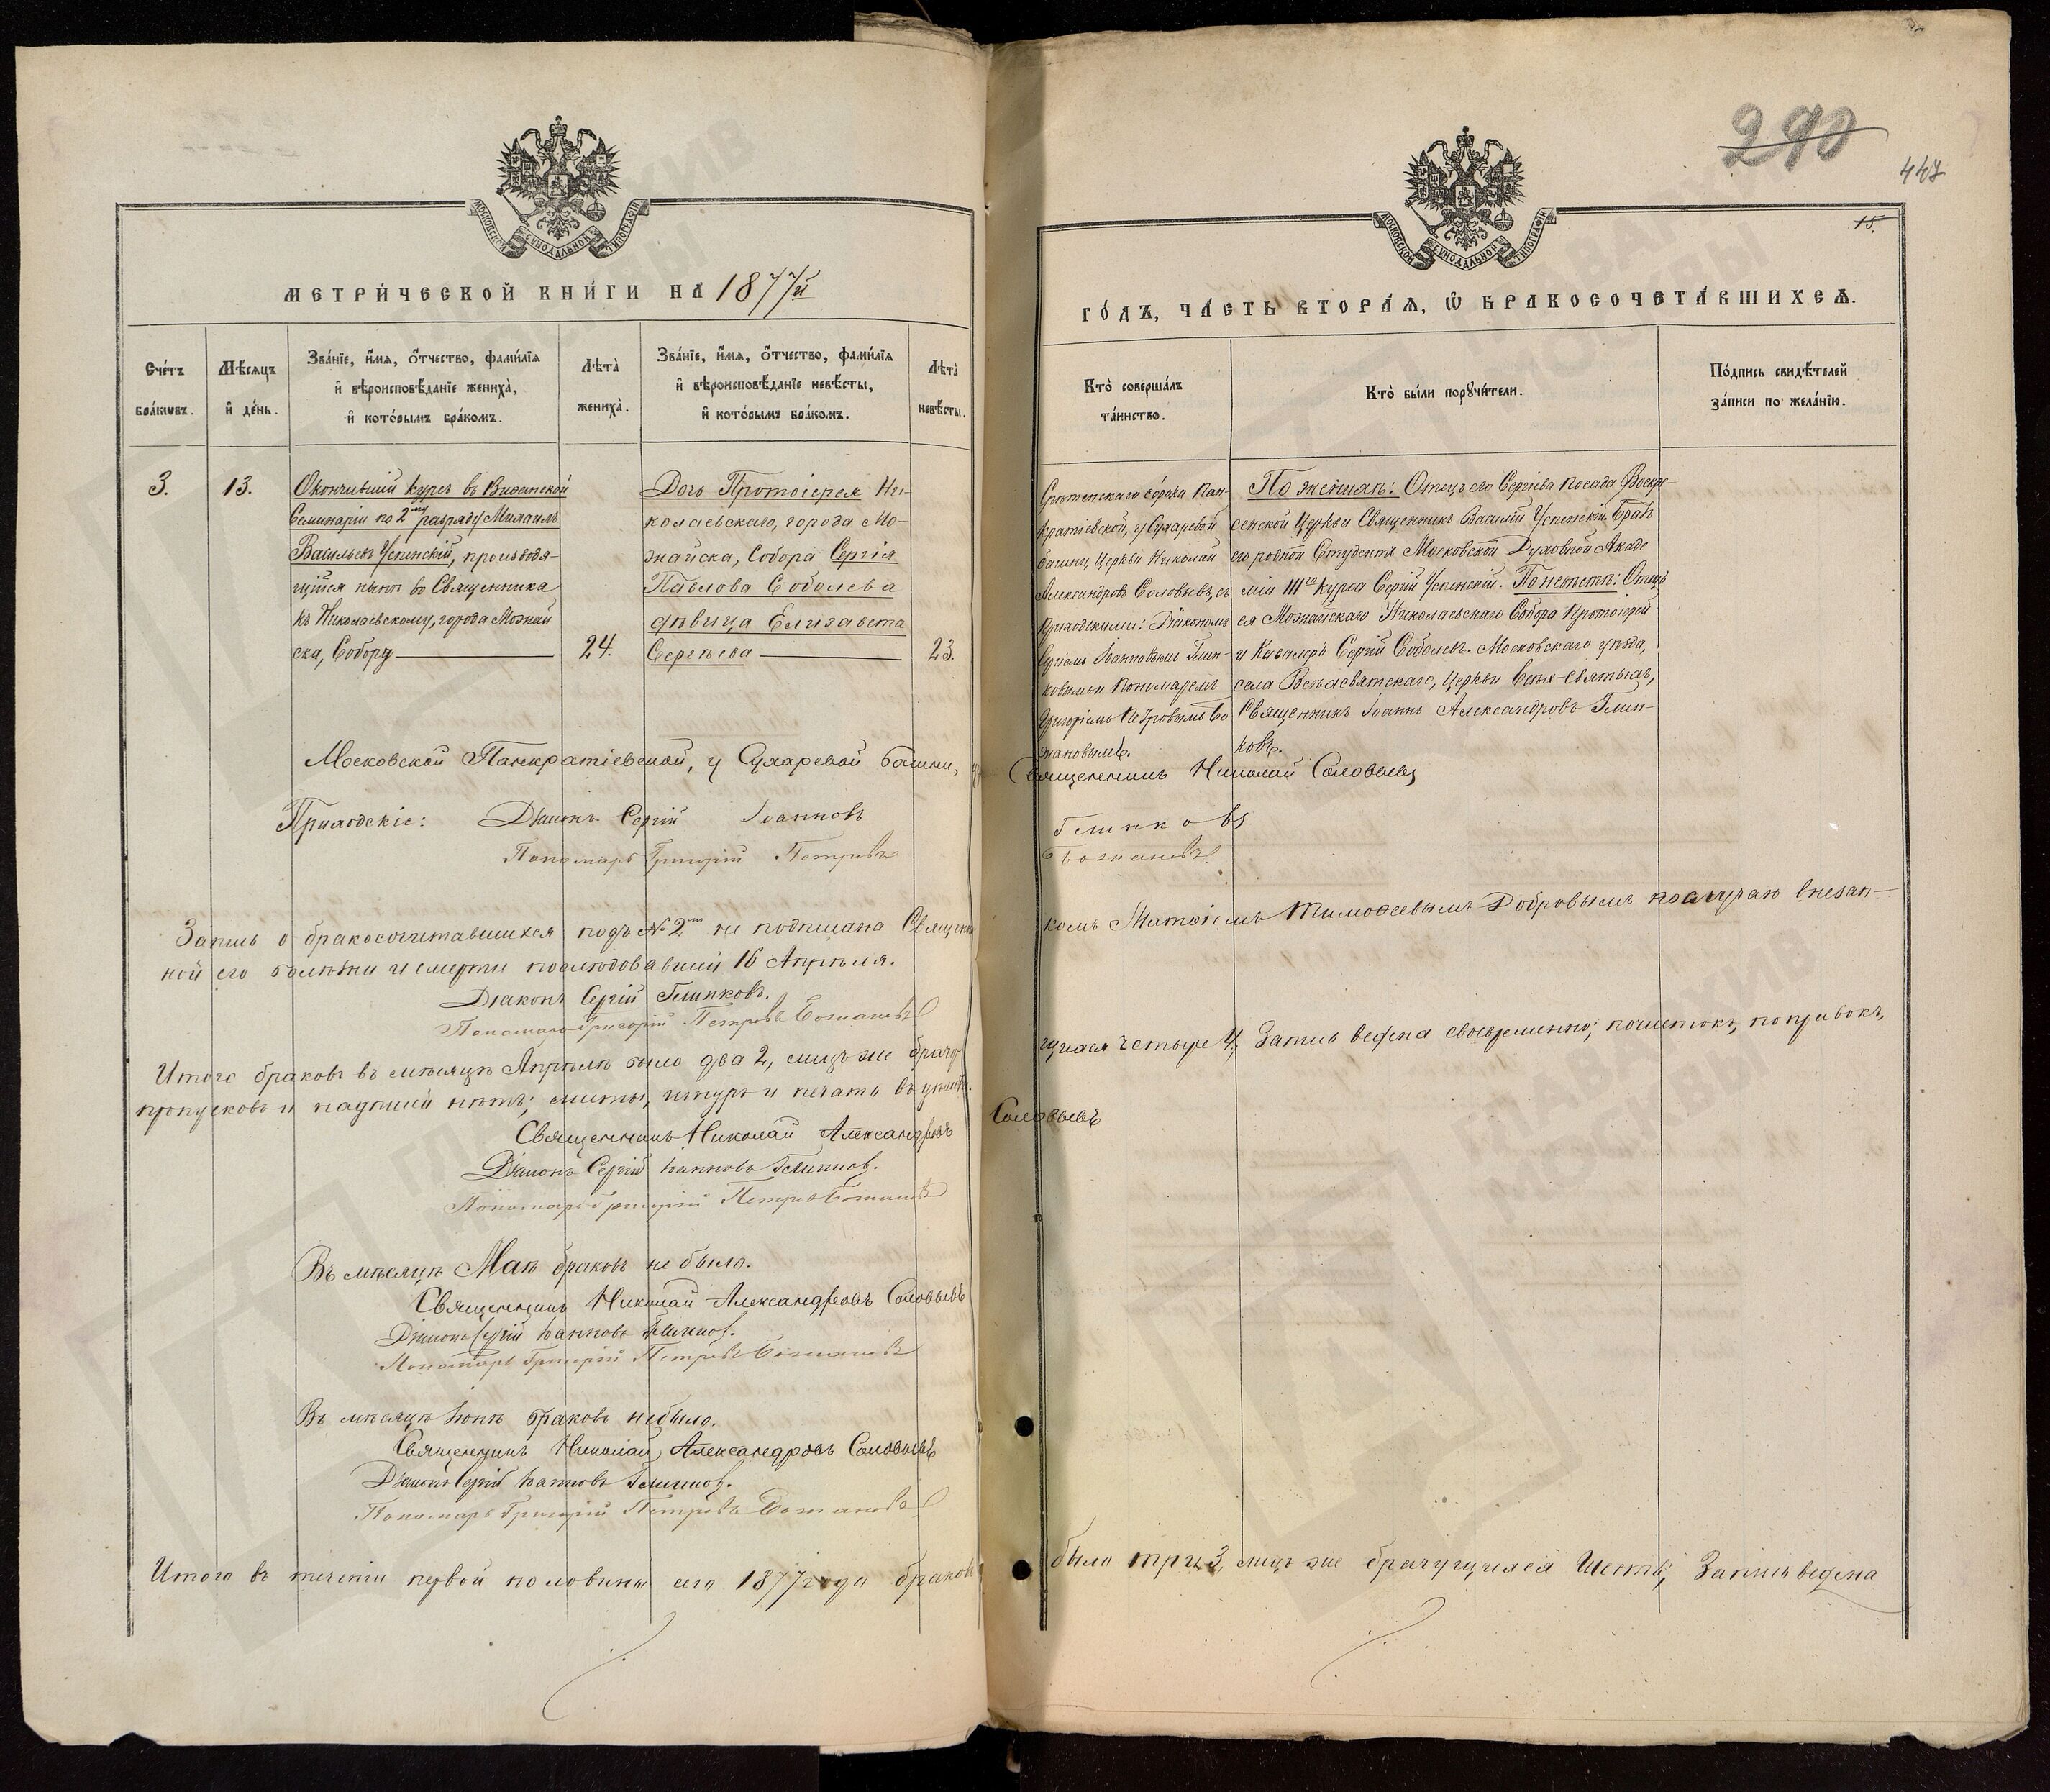 290
447
15.
МОСКОВСКОЙ СѴНОДАЛЬНОЙ ТИПОГРАФІИ
МОСКОВСКОЙ СѴНОДАЛЬНОЙ ТИПОГРАФІИ
МЕТРИ́ЧЕСКОЙ КНИ́ГИ НА 1877й
ГО́ДЪ, ЧА́СТЬ ВТОРА́Ѧ, Ѡ҆ БРАКОСОЧЕТА́ВШИХСѦ.
Сче́тъ
бра́кѡвъ.
Мѣ́сѧцъ
и҆ де́нь.
Зва́нїе, и҆́мѧ, ѻ҆́тчество, фами́лїѧ
и҆ вѣроисповѣ́данїе жениха̀,
и҆ кото́рымъ бра́комъ.
Лѣ́та̀
жениха̀.
Зва́нїе, и҆́мѧ, ѻ҆́тчество, фами́лїѧ
и҆ вѣроисповѣ́данїе невѣ́сты,
и҆ кото́рымъ бра́комъ.
Лѣ́та̀
невѣ́сты.
Кто̀ соверша́лъ
та́инство.
Кто̀ бы́ли порꙋчи́тели.
По́дпись свидѣ́телей
за́писи по жела́нїю.
3.
13.
Окончившій курсъ въ Виѳанской
Семинаріи по 2му разряду Михаилъ
Васильевъ Успенскій, производя-
щійся нынѣ во Священника
къ Николаевскому, города Можай
ска, Собору
24.
Дочь Протоіерея Ни-
колаевскаго, города Мо-
жайска, Собора Сергія
Павлова Соболева
дѣвица Елизавета
Сергѣева
23.
Срѣтенскаго сорока Пан-
кратіевской, у Сухаревой
башни, Церкви Николай
Александровъ Соловьевъ, съ
приходскими: Діакономъ
Сергіемъ Іоанновымъ Глин-
ковымъ и Пономаремъ
Григоріемъ Петровымъ Бо
жановымъ.
По женихѣ: Отецъ его Сергіева посада Воскре-
сенской Церкви Священникъ Василій Успенскій. Братъ
его родной Студентъ Московской Духовной Акаде
міи IIIго курса Сергій Успенскій. По невѣстѣ: Отецъ
ея Можайскаго Николаевскаго Собора Протоіерей
и Кавалеръ Сергій Соболевъ. Московскаго уѣзда,
села Всѣхсвятскаго, Церкви Всѣх-Святыхъ,
Священникъ Іоаннъ Александровъ Глин-
ковъ.
Московской Панкратіевской, у Сухаревой башни,
Священникъ Николай Соловьевъ
Приходскіе: Діаконъ Сергій Іоанновъ
Глинковъ
Пономарь Григорій Петровъ
Божановъ
Запись о бракосочитавшихся подъ №2мъ не подписана Священни
комъ Матѳіемъ Тимоѳеевымъ Добровымъ по случаю внезап-
ной его болѣзни и смерти послѣдовавшей 16 Апрѣля.
Діаконъ Сергій Глинковъ.
Пономарь Григорій Петровъ Божановъ
Итого браковъ въ мѣсяцѣ Апрѣлѣ было два 2, лицъ же брачу-
щихся четыре 4; Запись ведена своевременно; почистокъ, поправокъ,
пропусковъ и надписей нѣтъ; листы, шнуръ и печать въ цѣлости.
Священникъ Николай Александровъ
Соловьевъ
Діаконъ Сергій Іоанновъ Глинковъ.
Пономарь Григорій Петровъ Божановъ
Въ мѣсяцѣ Маѣ браковъ не было.
Священникъ Николай Александровъ Соловьевъ
Діаконъ Сергій Іоанновъ Глинковъ.
Пономарь Григорій Петровъ Божановъ
Въ мѣсяцѣ Іюнѣ браковъ не было.
Священникъ Николай Александровъ Соловьевъ
Діаконъ Сергій Іоанновъ Глинковъ.
Пономарь Григорій Петровъ Божановъ
Итого въ теченіи первой половины сего 1877 года браковъ
было три 3, лицъ же брачущихся шесть; Запись ведена